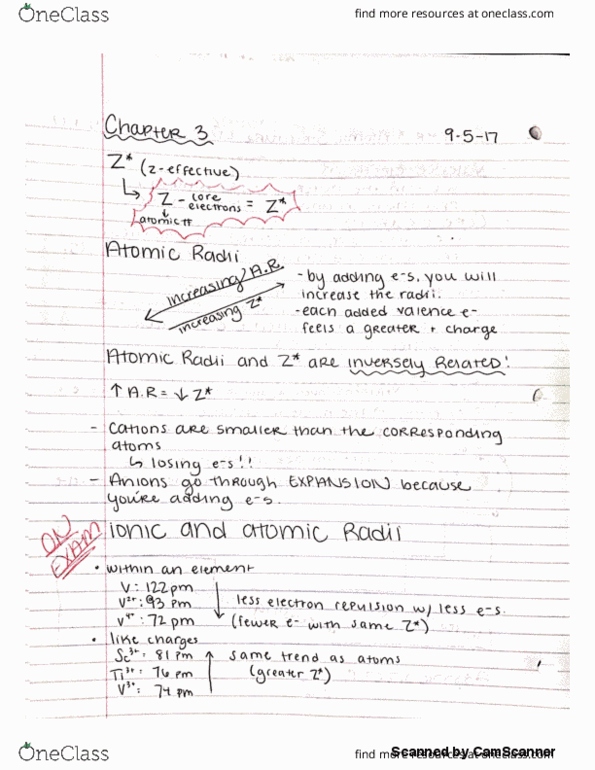 OneClass
find more resources at oneclass.com
Chapter 3
9-5-17
Z* (z-effective)
Z - core electrons = Z*
atomic #
Atomic Radii
increasing A.R
increasing Z*
- by adding e-s, you will
increase the radii.
- each added valence e-
feels a greater + charge
Atomic Radii and Z* are inversely Related!
↑ A.R = ↓ Z*
- Cations are smaller than the corresponding
atoms
↳ losing e-s!!
- Anions go through EXPANSION because
you're adding e-s.
ON EXAM
ionic and atomic Radii
• within an element
V: 122 pm
V²⁺: 93 pm
V⁴⁺: 72 pm
less electron repulsion w/ less e-s.
(fewer e- with same Z*)
• like charges
Sc³⁺: 81 pm
Ti³⁺: 76 pm
V³⁺: 74 pm
same trend as atoms
(greater Z*)
OneClass
find more resources at oneclass.com
Scanned by CamScanner